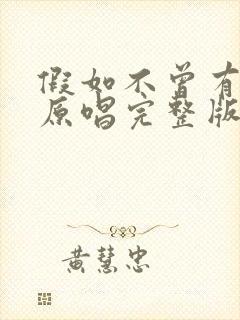 假如不曾有
原唱完整版
黄慧忠